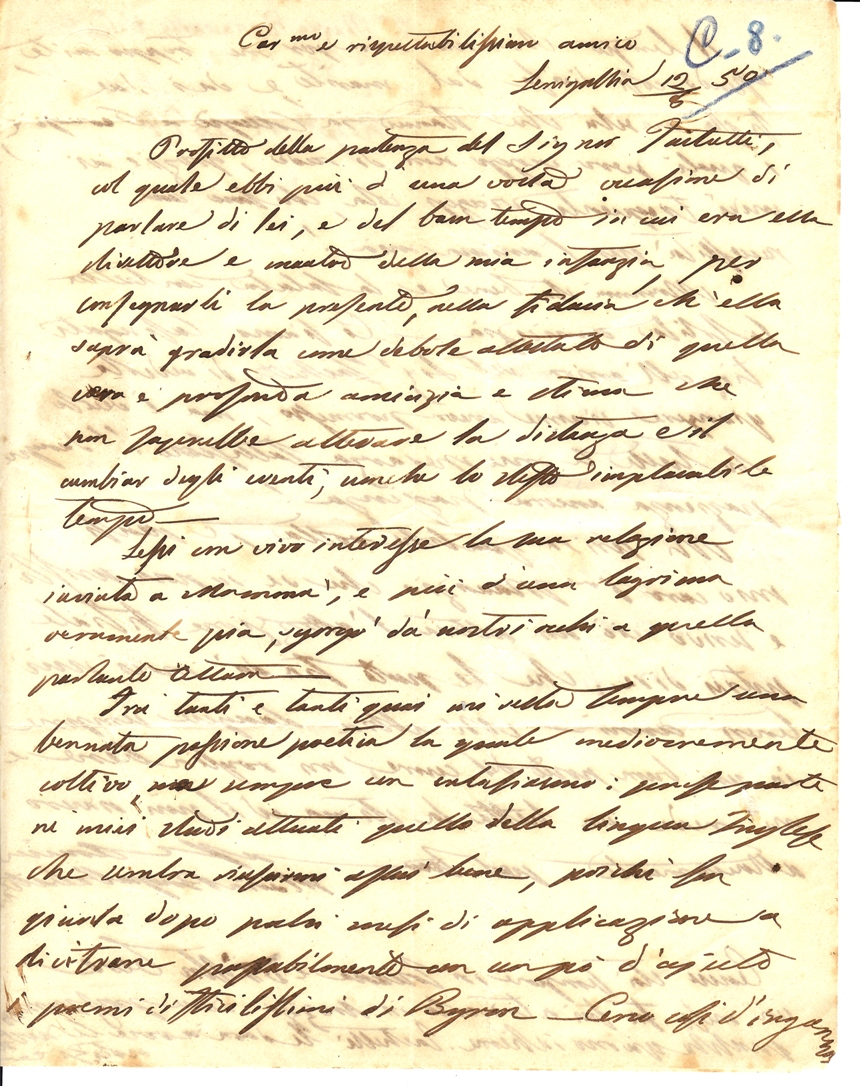 C. 8.
Car.mo e rispettabilissimo amico
Senigallia 12/6 50
Profitto della partenza del Signor
col quale ebbi più d'una volta occasione di
parlare di lei, e del buon tempo in cui era ella
direttore e maestro della mia infanzia, per
consegnarli la presente, nella fiducia ch'ella
saprà gradirla come debole attestato di quella
vera e profonda amicizia e stima che
non saperebbe alterare la distanza e il
cambiar degli eventi, neanche lo stesso implacabile
tempo —
Lessi con vivo interesse la sua relazione
inviata a Mammà, e più d'una lagrima
veramente pia, sgorgò da nostri occhi a quella
parlante
Fra tanti e tanti guai mi resta sempre una
bennata passione poetica la quale mediocremente
coltivo, ma sempre con entusiasmo; prese parte
ne miei studi attuali quello della lingua Inglese
che sembra riuscirmi assai bene, poichè son
giunta dopo pochi mesi di applicazione a
dicitrare passabilmente con un pò d'ajuto
poemi difficilissimi di Byron — Cerco così d'ingannare